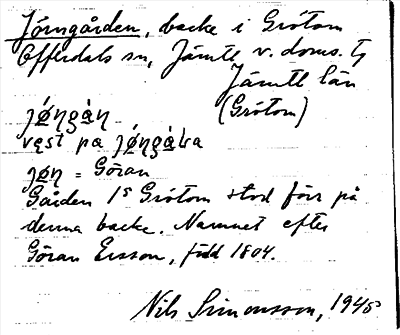 Jörngården, backe i Grötom
Offerdals sn, Jämtl v. doms. tg
Jämtl län
(Grötom)
jǿŋgàn
vęst pa jǿŋgàka
jøn = Göran
Gården 1⁵ Grötom stod förr på
denna backe. Namnet efter
Göran Ersson, född 1804.
Nils Simonsson, 1945